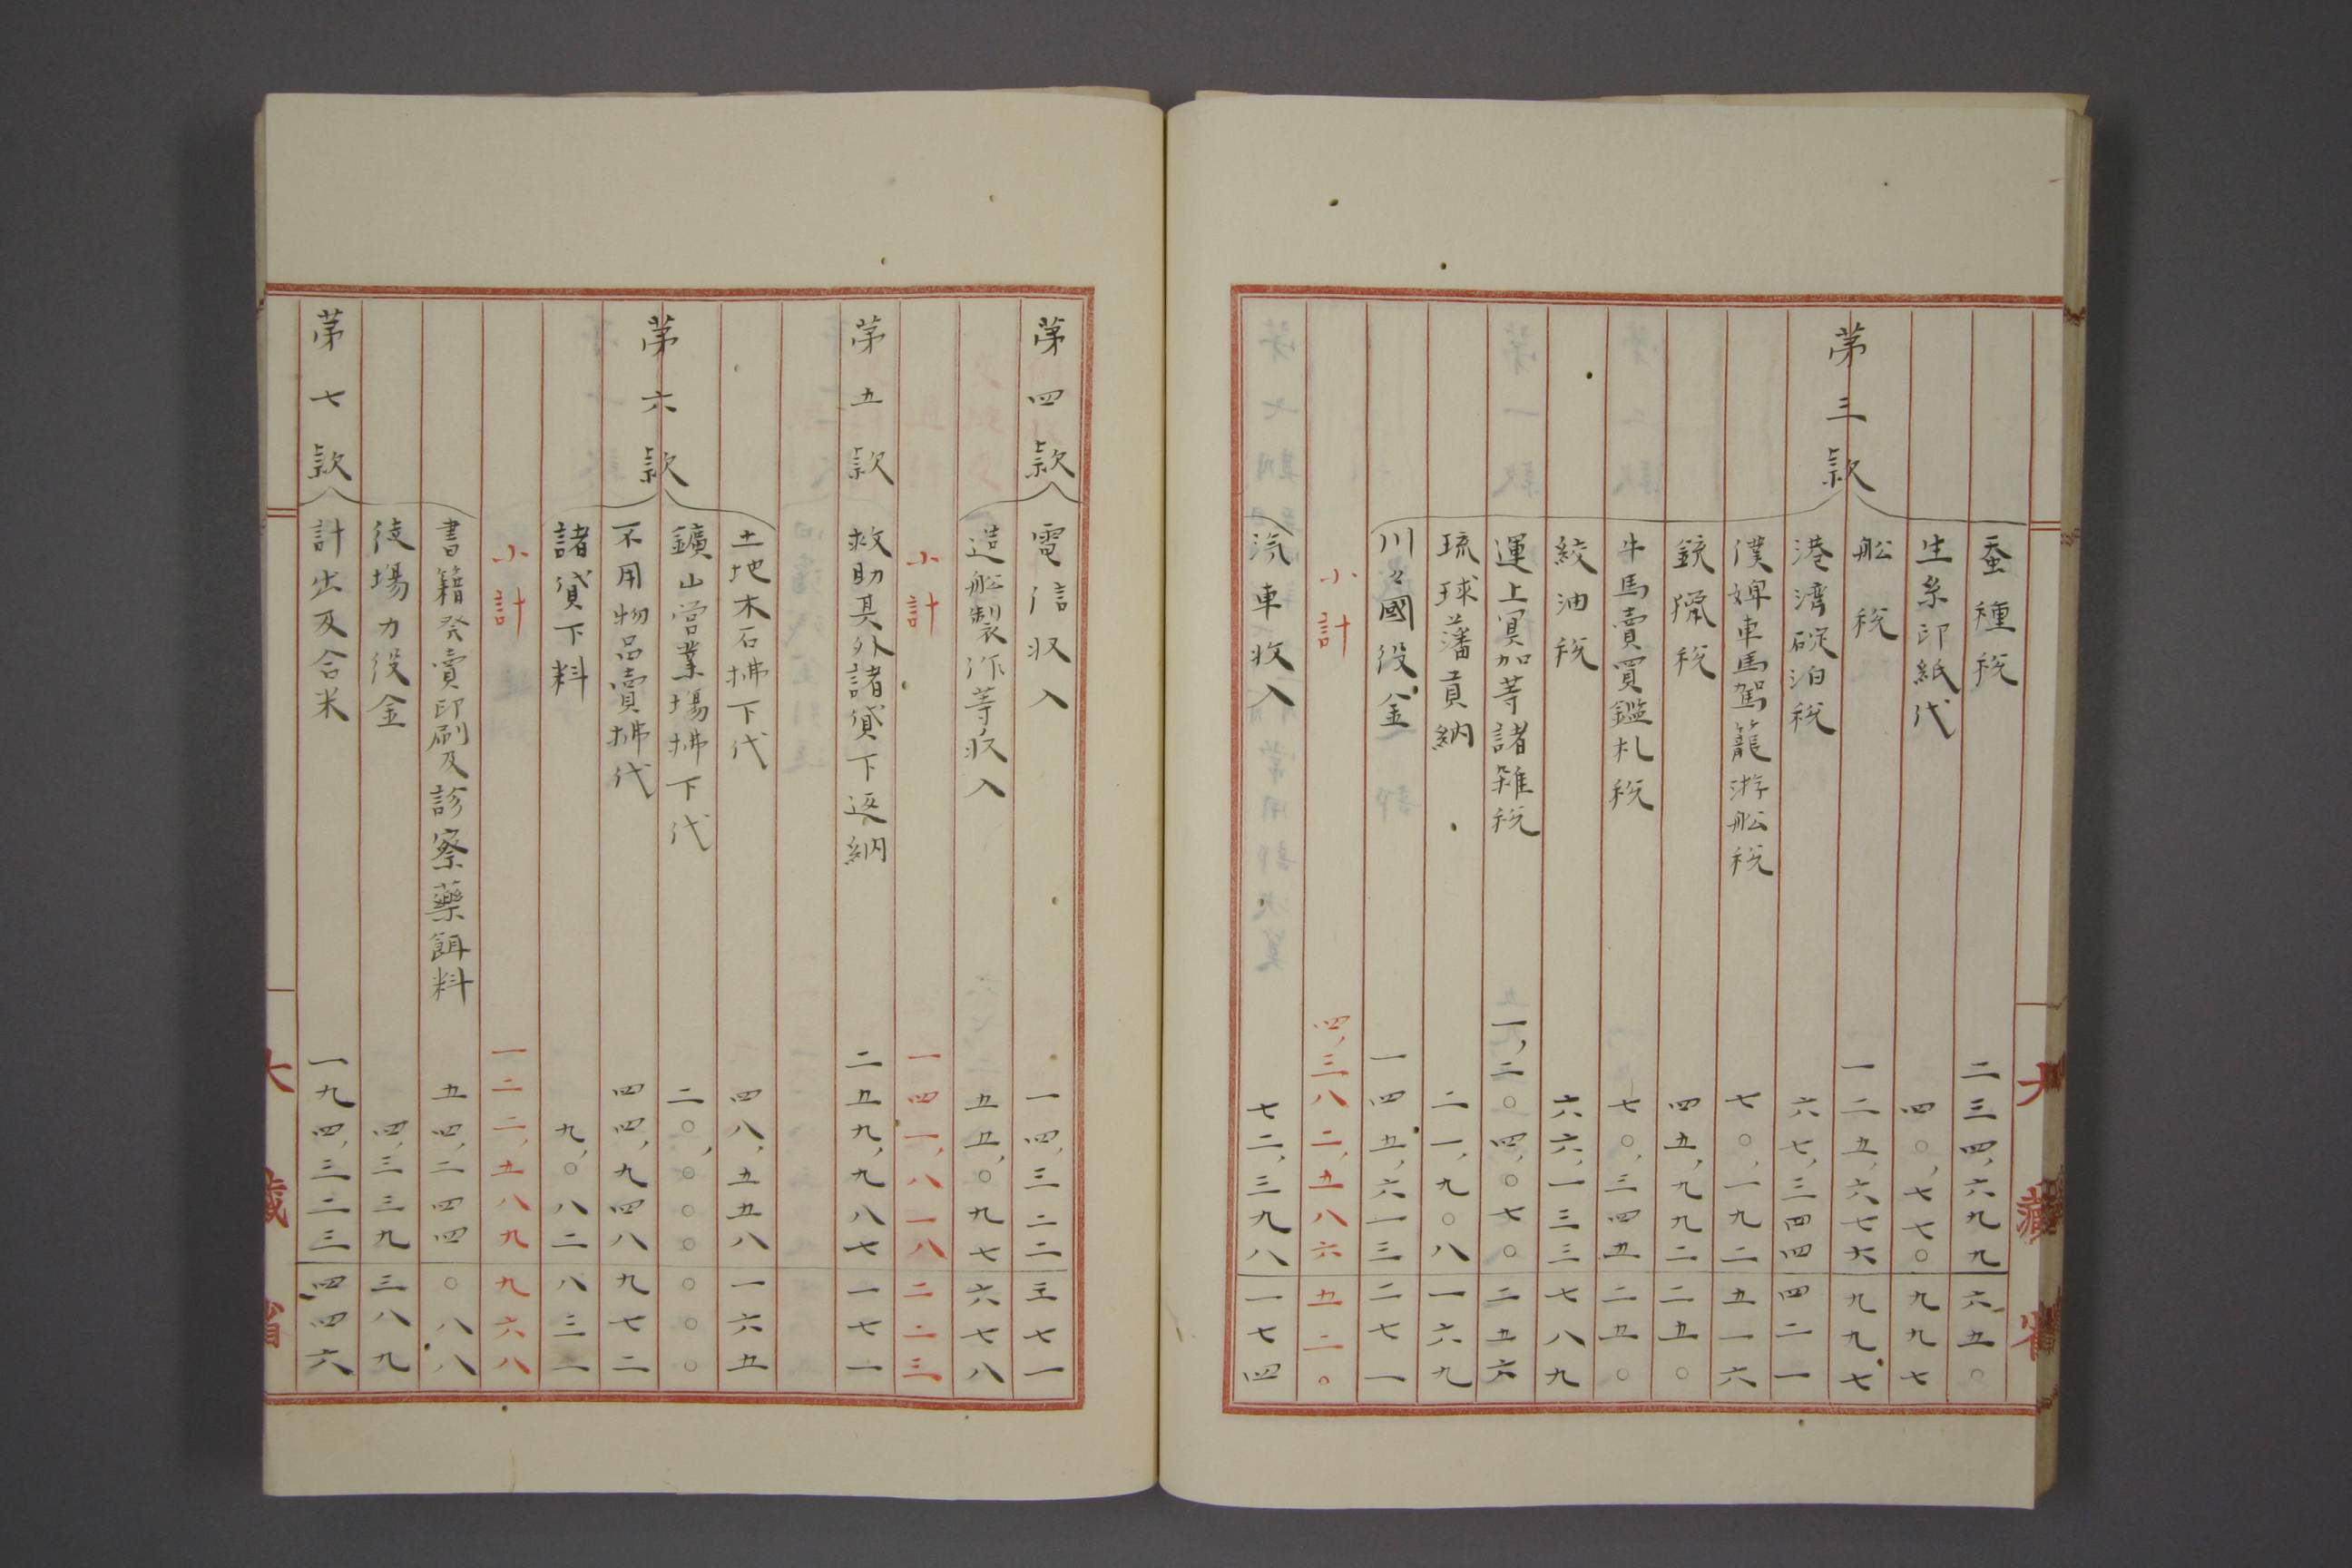 第三款
蚕種税 二三四,六九九 六五〇
生糸印紙代 四〇,七七〇 九九七
舩税 一二五,六七六 九九七
港湾碇泊税 六七,三四四 四二一
僕婢車馬駕籠游舩税 七〇,一九二 五一六
銃猟税 四五,九九二 二五〇
牛馬賣買鑑札税 七〇,三四五 二五〇
絞油税 六六,一三三 七八九
運上冥加等諸雑税 一,二〇四,〇七〇 二五六
琉球藩貢納 二一,九〇八 一六九
川々國役金 一四五,六一三 二七一
小計 四,三八二,五八六 五二〇
汽車收入 七二,三九八 一七四
大藏省
第四款
電信收入 一四,三二二 三七一
造舩製作等收入 五五,〇九七 六七八
小計 一四一,八一八 二二三
第五款
救助其外諸貸下返納 二五九,九八七 一七一
第六款
土地木石拂下代 四八,五五八 一六五
鑛山営業場拂下代 二〇,〇〇〇 〇〇〇
不用物品賣拂代 四四,九四八 九七二
諸貸下料 九,〇八二 八三一
小計 一二二,五八九 九六八
第七款
書籍発賣印刷及診察藥餌料 五四,二四四 〇八八
徒場力役金 四,三三九 三八九
計出及合米 一九四,三二三 四四六
大藏省